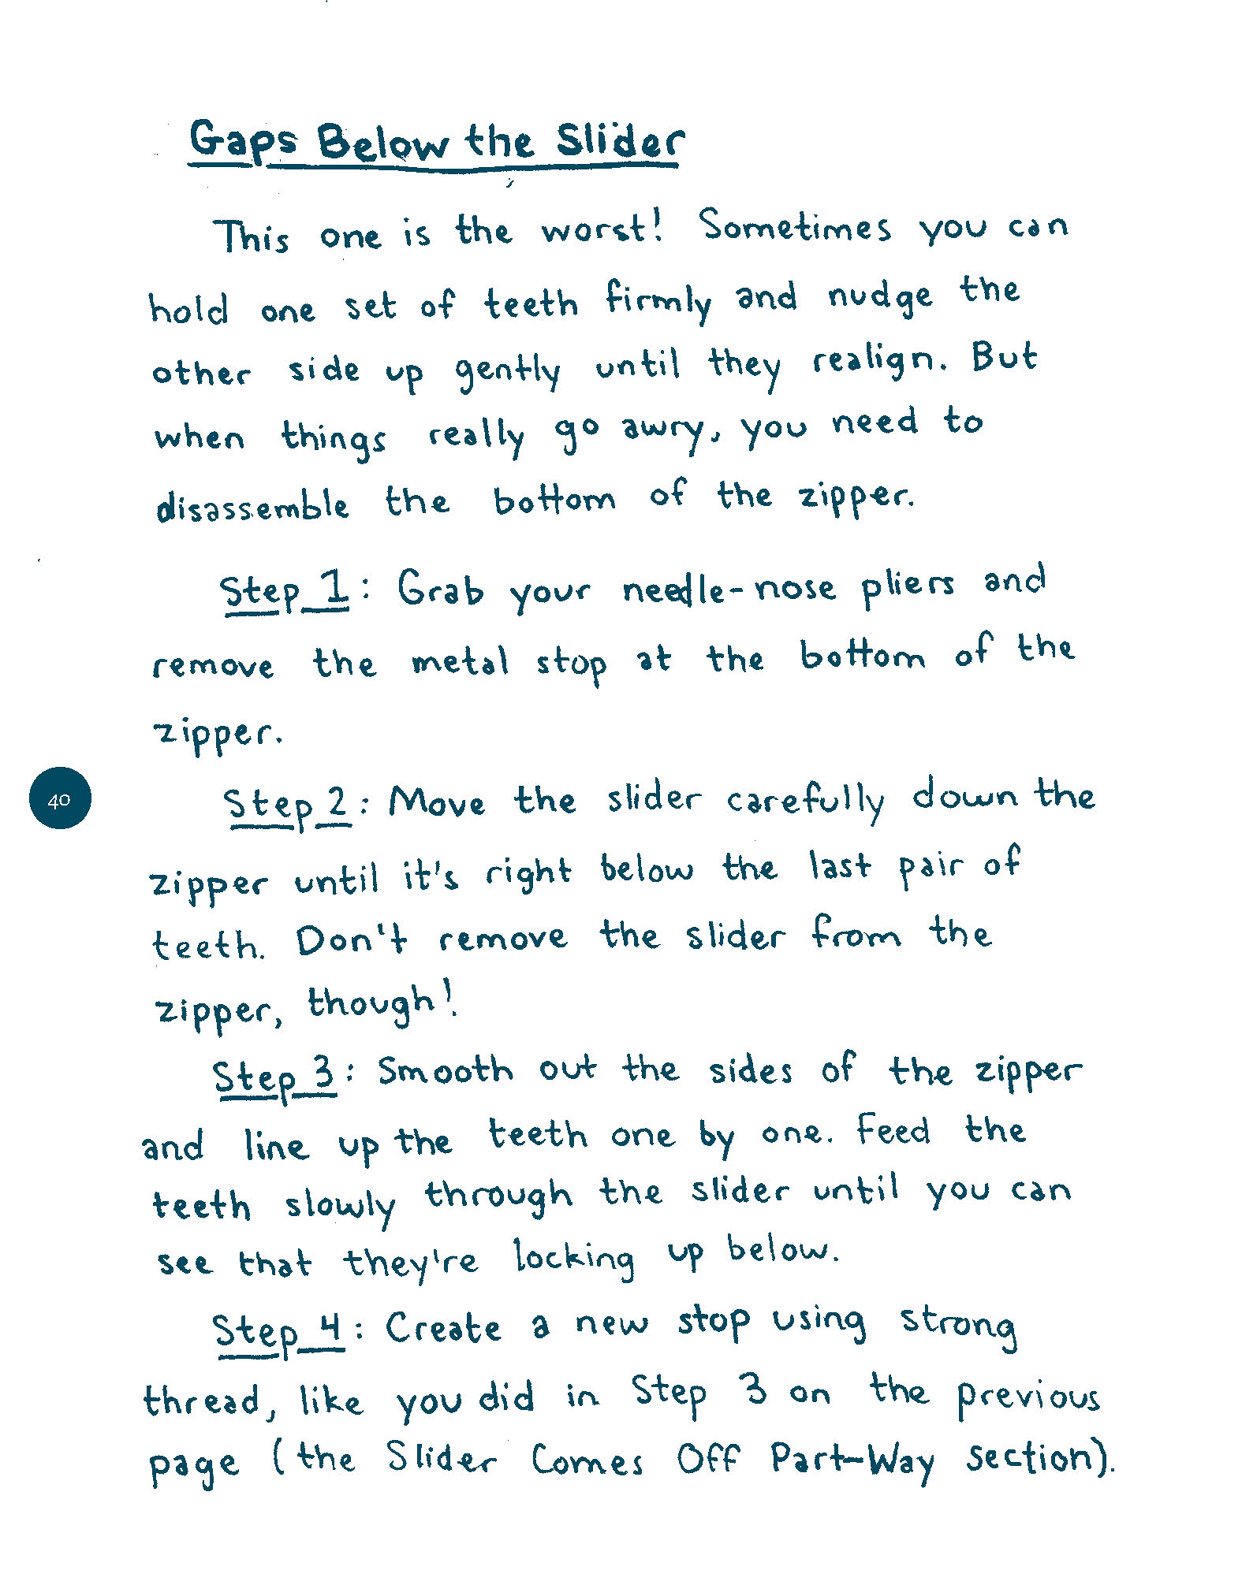 Gaps Below the Slider
This one is the worst! Sometimes you can
hold one set of teeth firmly and nudge the
other side up gently until they realign. But
when things really go awry, you need to
disassemble the bottom of the zipper.
Step 1: Grab your needle-nose pliers and
remove the metal stop at the bottom of the
zipper.
40
Step 2: Move the slider carefully down the
zipper until it's right below the last pair of
teeth. Don't remove the slider from the
zipper, though!
Step 3: Smooth out the sides of the zipper
and line up the teeth one by one. Feed the
teeth slowly through the slider until you can
see that they're locking up below.
Step 4: Create a new stop using strong
thread, like you did in Step 3 on the previous
page (the Slider Comes Off Part-Way section).